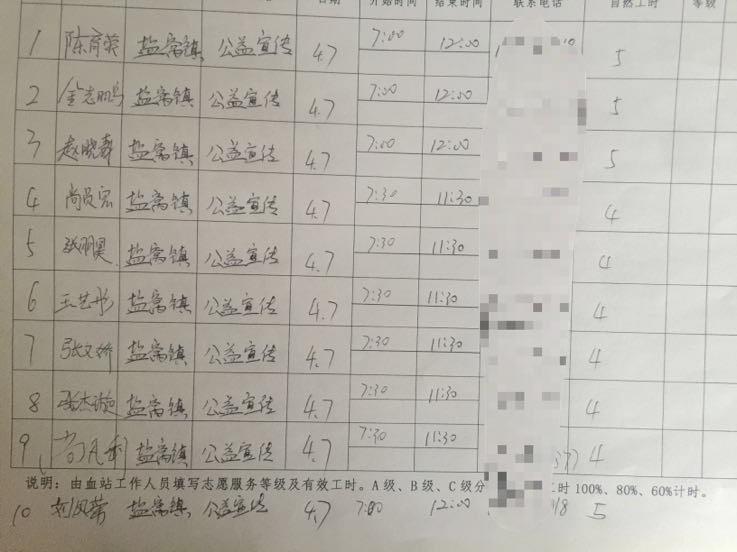 日期 开始时间 结束时间 联系电话 自然工时 等级
1 盐窝镇 公益宣传 4.7 7:00 12:00 5
2 盐窝镇 公益宣传 4.7 7:00 12:00 5
3 赵晓 盐窝镇 公益宣传 4.7 7:00 12:00 5
4 尚 盐窝镇 公益宣传 4.7 7:30 11:30 4
5 张 盐窝镇 公益宣传 4.7 7:30 11:30 4
6 王艺彤 盐窝镇 公益宣传 4.7 7:30 11:30 4
7 张文娇 盐窝镇 公益宣传 4.7 7:30 11:30 4
8 张杰 盐窝镇 公益宣传 4.7 7:30 11:30 4
9 盐窝镇 公益宣传 4.7 7:30 11:30 4
说明：由血站工作人员填写志愿服务等级及有效工时。A级、B级、C级分 工时100%、80%、60%计时。
10 刘凤荣 盐窝镇 公益宣传 4.7 7:00 12:00 5